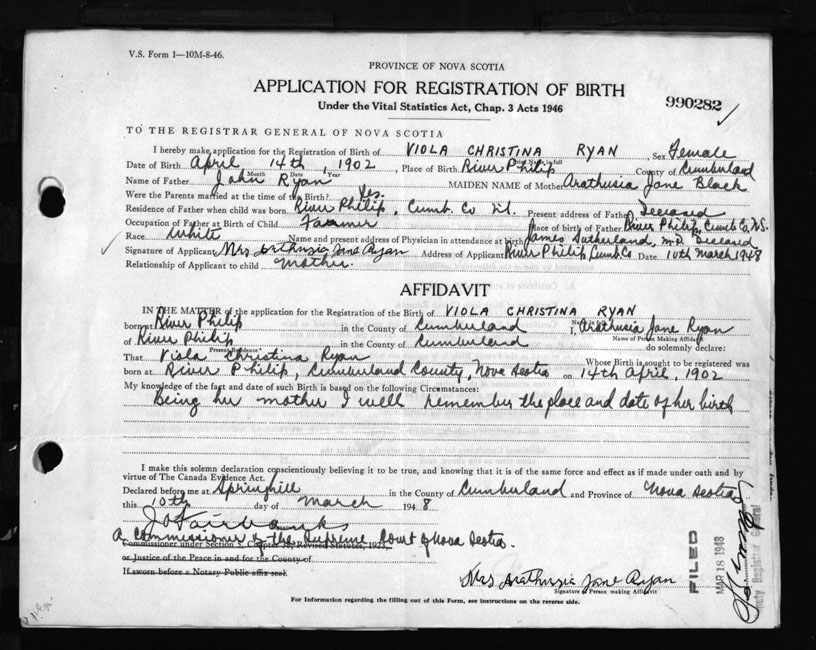 V.S. Form 1—10M-8-46.
PROVINCE OF NOVA SCOTIA
APPLICATION FOR REGISTRATION OF BIRTH
Under the Vital Statistics Act, Chap. 3 Acts 1946
990282
TO THE REGISTRAR GENERAL OF NOVA SCOTIA
I hereby make application for the Registration of Birth of VIOLA CHRISTINA RYAN, Sex Female
Print Name in full
Date of Birth April 14th, 1902, Place of Birth River Philip County of Cumberland
Month Date Year
Name of Father John Ryan MAIDEN NAME of Mother Arathusia Jane Black
Were the Parents married at the time of the Birth? Yes.
Residence of Father when child was born River Philip, Cumb. Co Present address of Father Deceased
Occupation of Father at Birth of Child Farmer Place of birth of Father River Philip, Cumb Co, N.S.
Race White Name and present address of Physician in attendance at birth James Sutherland, M.D. Deceased
Signature of Applicant Mrs Arathusia Jane Ryan Address of Applicant River Philip Cumb Co Date 10th March 1948
Relationship of Applicant to child Mother.
AFFIDAVIT
IN THE MATTER of the application for the Registration of the Birth of VIOLA CHRISTINA RYAN
Name in full
born at River Philip in the County of Cumberland I, Arathusia Jane Ryan
Name of Person Making Affidavit
of River Philip in the County of Cumberland do solemnly declare:
Present Residence
That Viola Christina Ryan Whose Birth is sought to be registered was
born at River Philip, Cumberland County, Nova Scotia on 14th April, 1902
My knowledge of the fact and date of such Birth is based on the following Circumstances:
Being her mother I well remember the place and date of her birth
I make this solemn declaration conscientiously believing it to be true, and knowing that it is of the same force and effect as if made under oath and by
virtue of The Canada Evidence Act.
Declared before me at Springhill in the County of Cumberland and Province of Nova Scotia
this 10th day of March 1948
J O Fairbanks
A Commissioner of the Supreme Court of Nova Scotia.
Commissioner under Section 5, Chapter Revised Statutes, 1923
or Justice of the Peace in and for the County of
If sworn before a Notary Public affix seal.
Mrs Arathusia Jane Ryan
Signature of Person making Affidavit
For Information regarding the filling out of this Form, see instructions on the reverse side.
FILED
MAR 18 1948
Deputy Registrar General